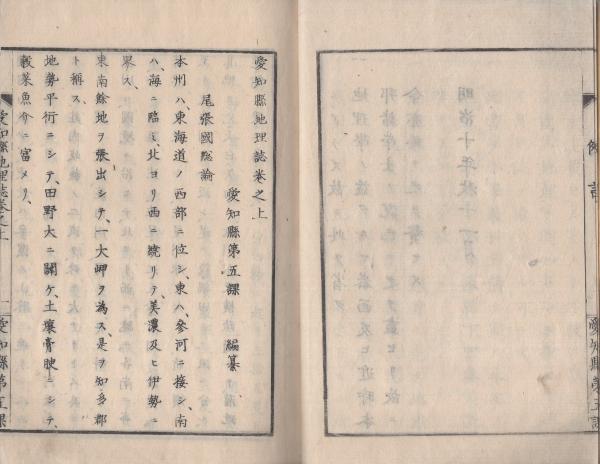 例言
愛知縣第五課
愛知縣地理誌卷之上
愛知縣第五課　編纂
尾張國總論
本州ハ、東海道ノ西部ニ位シ、東ハ、參河ニ接シ、南
ハ、海ニ臨ミ、北ヨリ西ニ繞リテ、美濃及ヒ伊勢ニ
界ス、
東南餘地ヲ張出シテ、一大岬ヲ為ス、是ヲ知多郡
ト稱ス、
地勢平衍ニシテ、田野大ニ闢ケ、土壤膏腴ニシテ、
穀菜魚介ニ富メリ、
愛知縣地理誌卷之上
一
愛知縣第五課